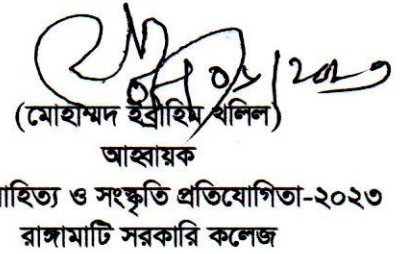 (মোহাম্মদ ইব্রাহিম খলিল)
আহ্বায়ক
াহিত্য ও সংস্কৃতি প্রতিযোগিতা-২০২৩
রাঙ্গামাটি সরকারি কলেজ